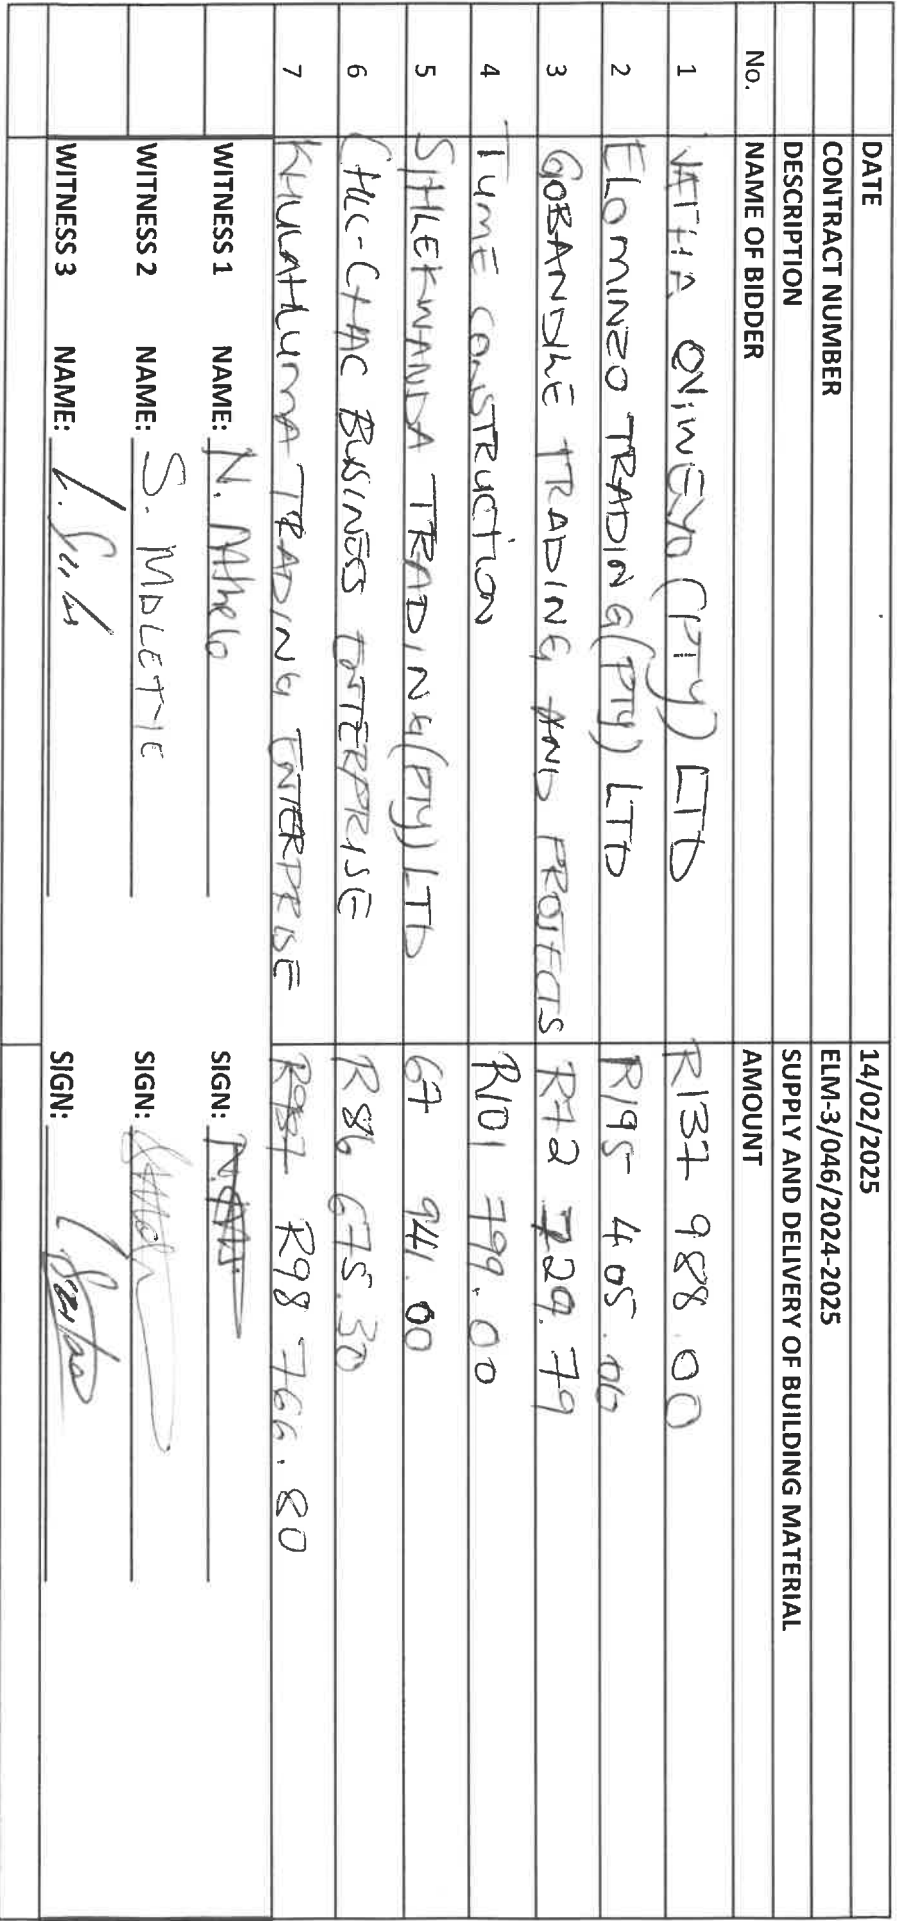 DATE 14/02/2025
CONTRACT NUMBER ELM-3/046/2024-2025
DESCRIPTION SUPPLY AND DELIVERY OF BUILDING MATERIAL
No. NAME OF BIDDER AMOUNT
1 (PTY) LTD R137 988.00
2 ELOMINZO TRADING (PTY) LTD R195 405.00
3 GOBANDILE TRADING AND PROJECTS R72 729.79
4 TUME CONSTRUCTION R101 799.00
5 SIHLEKWANDA TRADING (PTY) LTD 67 941.00
6 CHLC-CHAC BUSINESS ENTERPRISE R86 675.30
7 KHULAHLUMA TRADING ENTERPRISE R98 766.80
WITNESS 1 NAME: N. SIGN:
WITNESS 2 NAME: S. MOLETJE SIGN:
WITNESS 3 NAME: L. SIGN: